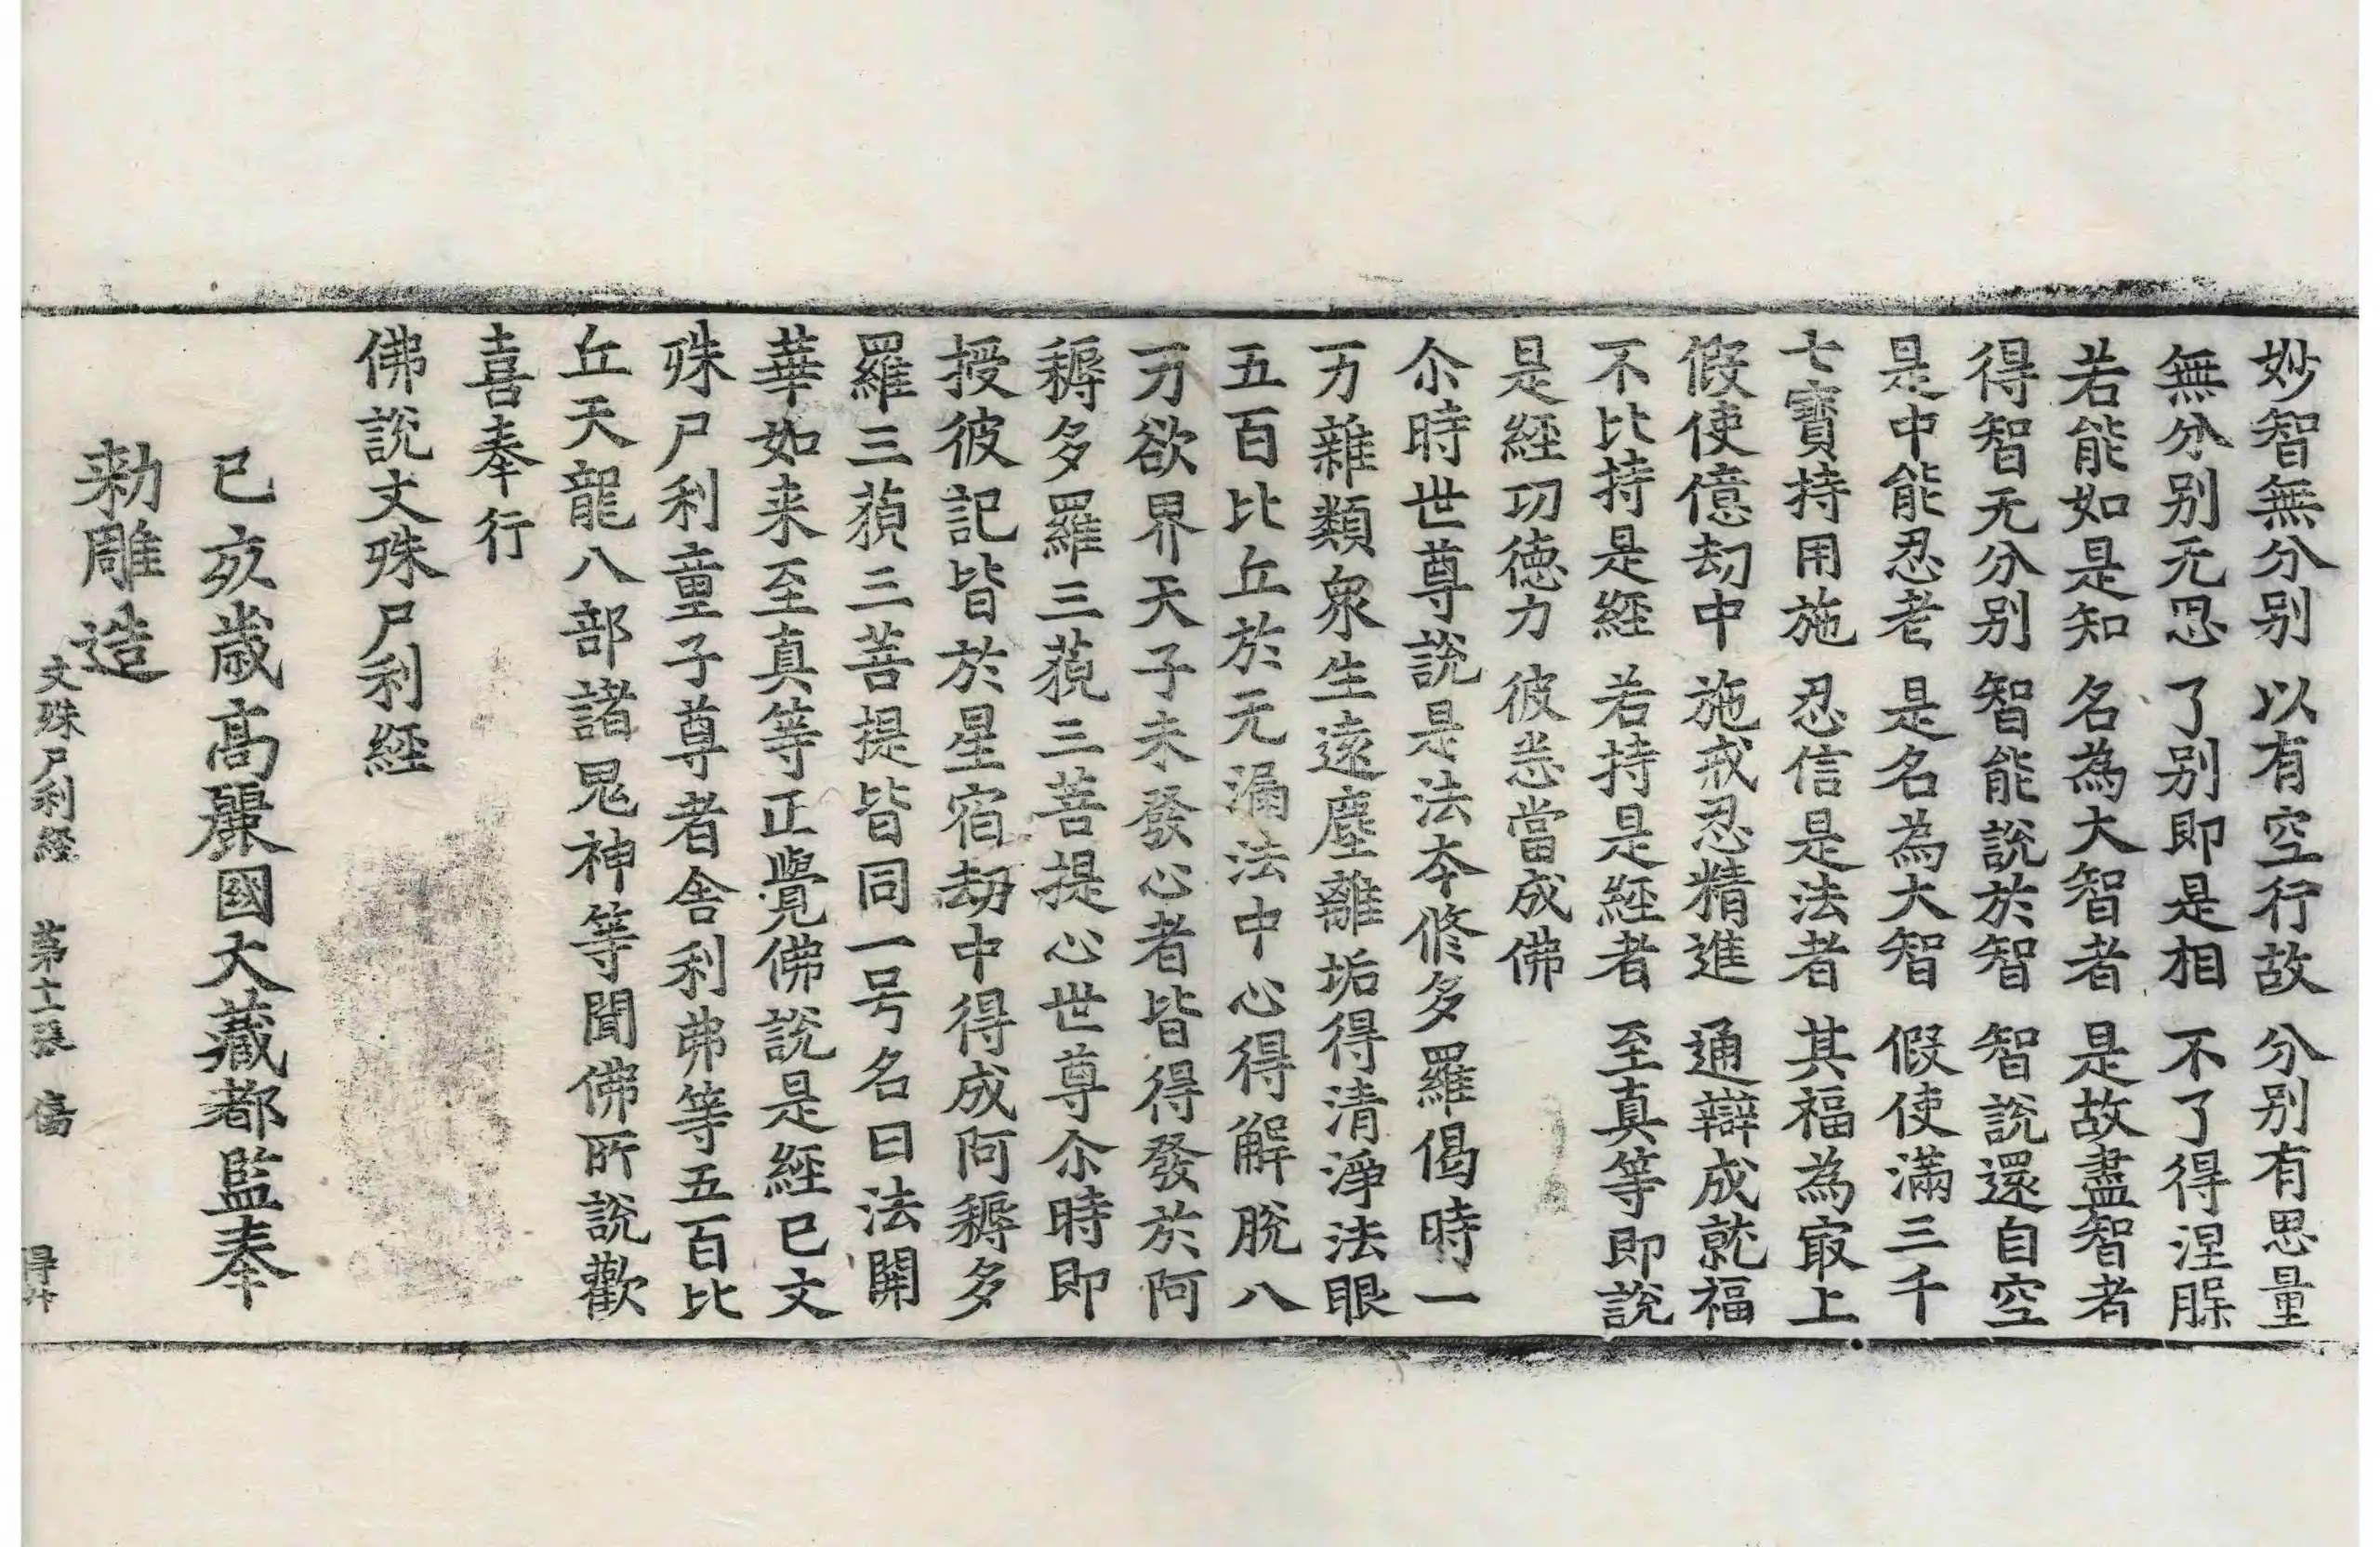 妙智無分別 以有空行故 分別有思量
無分別无思 了別即是相 不了得涅槃
若能如是知 名為大智者 是故盡智者
得智无分別 智能說於智 智說還自空
是中能忍者 是名為大智 假使滿三千
七寶持用施 忍信是法者 其福為㝡上
假使億劫中 施戒忍精進 通辯成就福
不比持是經 若持是經者 至真等即說
是經功德力 彼悉當成佛
尒時世尊說是法本修多羅偈時一
万雜類衆生遠塵離垢得清淨法眼
五百比丘於无漏法中心得解脫八
万欲界天子未發心者皆得發於阿
耨多羅三藐三菩提心世尊尒時即
授彼記皆於星宿劫中得成阿耨多
羅三藐三菩提皆同一号名曰法開
華如来至真等正覺佛說是經已文
殊尸利童子尊者舍利弗等五百比
丘天龍八部諸鬼神等聞佛所說歡
喜奉行
佛說文殊尸利經
己亥歲高麗國大藏都監奉
勑雕造
文殊尸利經 第十二張 傷